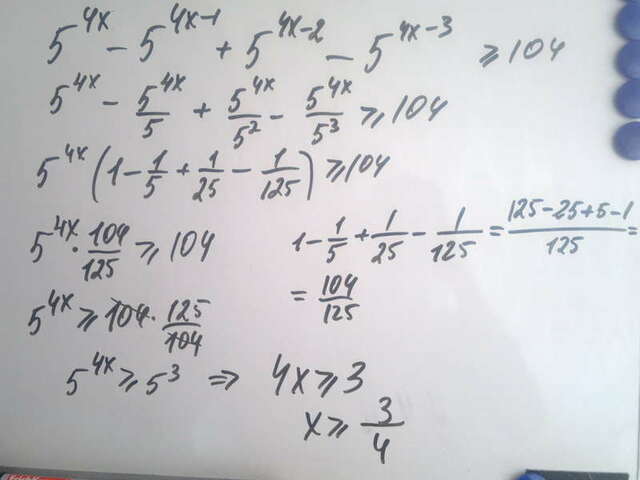 5^{4x} - 5^{4x-1} + 5^{4x-2} - 5^{4x-3} ≥ 104
5^{4x} - \frac{5^{4x}}{5} + \frac{5^{4x}}{5^2} - \frac{5^{4x}}{5^3} ≥ 104
5^{4x} (1 - \frac{1}{5} + \frac{1}{25} - \frac{1}{125}) ≥ 104
5^{4x} · \frac{104}{125} ≥ 104
1 - \frac{1}{5} + \frac{1}{25} - \frac{1}{125} = \frac{125-25+5-1}{125} =
= \frac{104}{125}
5^{4x} ≥ 104 · \frac{125}{104}
5^{4x} ≥ 5^3 ⇒ 4x ≥ 3
x ≥ \frac{3}{4}